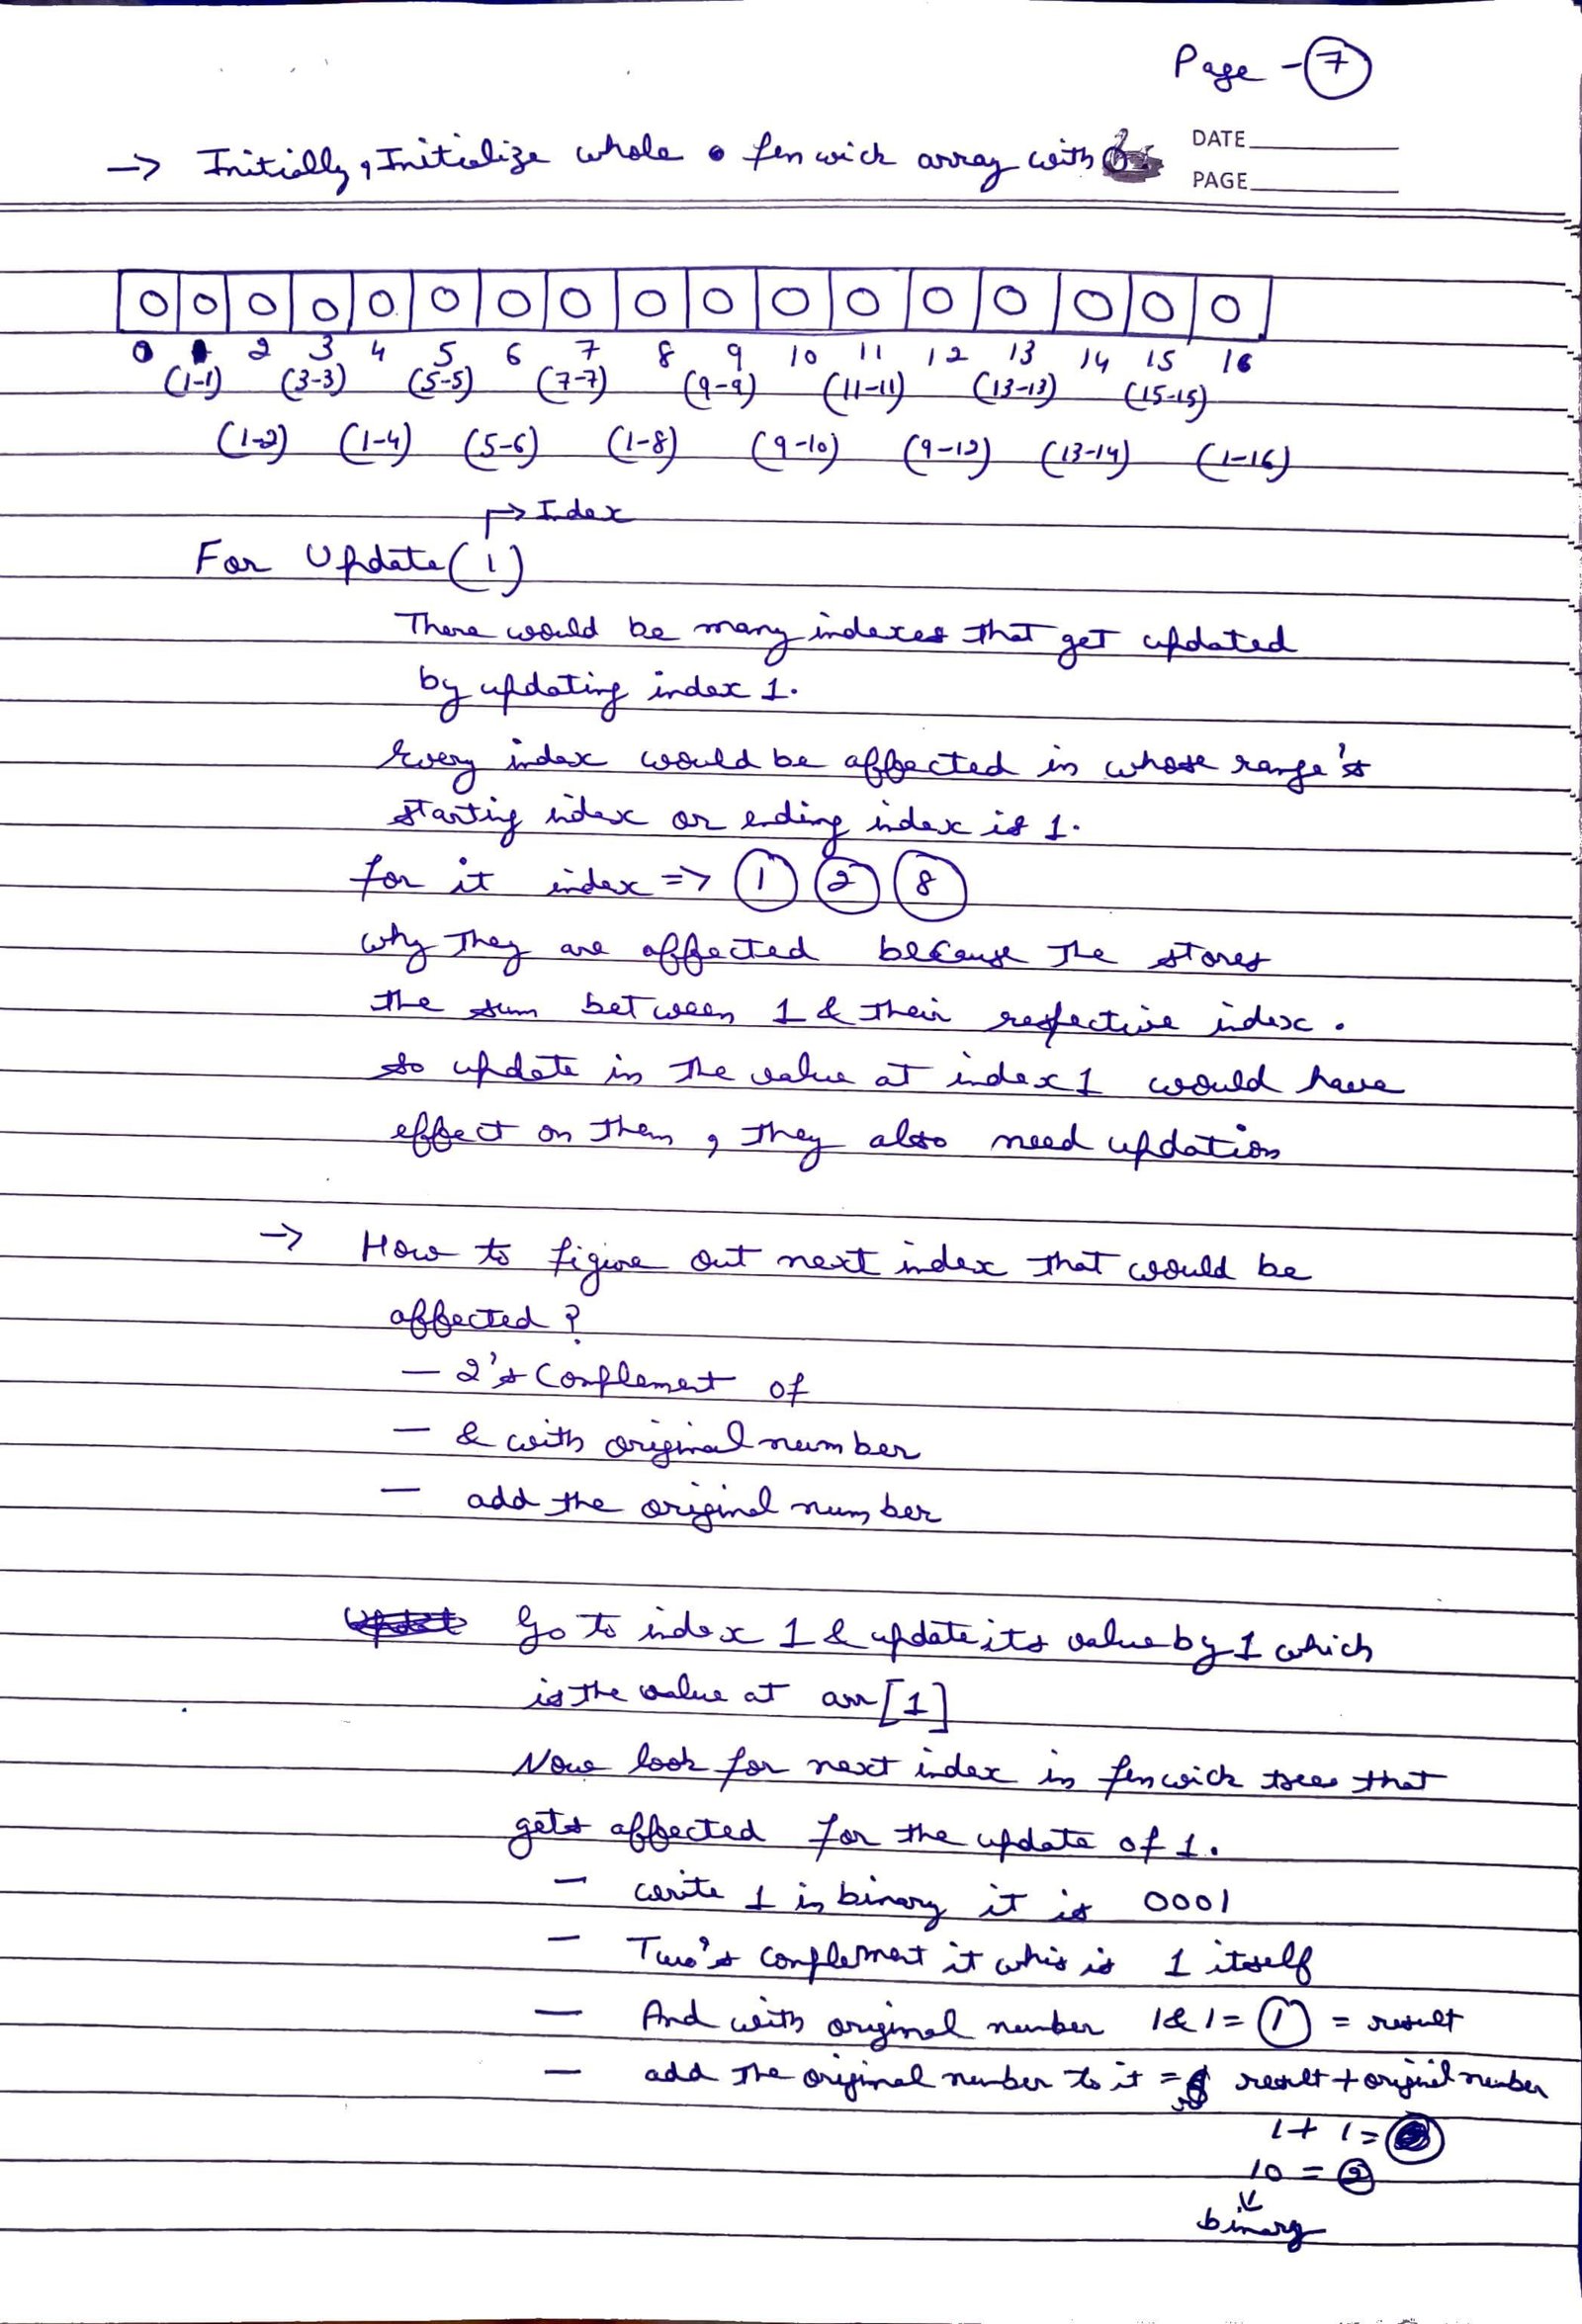 Page - 7
DATE
PAGE
-> Initially, Initialize whole fenwick array with 0
0 0 0 0 0 0 0 0 0 0 0 0 0 0 0 0 0
0 1 2 3 4 5 6 7 8 9 10 11 12 13 14 15 16
(1-1) (3-3) (5-5) (7-7) (9-9) (11-11) (13-13) (15-15)
(1-2) (1-4) (5-6) (1-8) (9-10) (9-12) (13-14) (1-16)
-> Index
For Update(1)
There would be many indexes that get updated
by updating index 1.
Every index would be affected in whose range's
starting index or ending index is 1.
for it index => 1 2 8
why they are affected because the stores
the sum between 1 & their respective index.
so update in the value at index 1 would have
effect on them, they also need updation
-> How to figure out next index that would be
affected ?
- 2's Complement of
- & with original number
- add the original number
Go to index 1 & update its value by 1 which
is the value at arr[1]
Now look for next index in fenwick tree that
gets affected for the update of 1.
- write 1 in binary it is 0001
- Two's complement it whis is 1 itself
- And with original number 1 & 1 = 1 = result
- add the original number to it = result + original number
1 + 1 =
10 = 2
binary